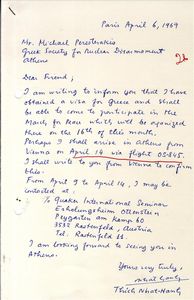 Paris April 6, 1969
Mr. Michael Peristerakis
Greek Society for Nuclear Disarmament
Athens
Dear Friend,
I am writing to inform you that I have
obtained a visa for Greece and shall
be able to come to participate in the
March for Peace which will be organized
there on the 16th of this month.
Perhaps I shall arrive in Athens from
Vienna on April 14 via flight OS 845.
I shall write to you from Vienna to confirm
this.
From April 9 to April 14, I may be
contacted at:
% Quaker International Seminar
Erholungsheim Ottenstein
Peygarten am Kamp 60
3532 Rastenfeld, Austria
Tel. Rastenfeld 16
I am looking forward to seeing you in
Athens.
Yours very truly,
Nhat Hanh
Thich Nhat-Hanh